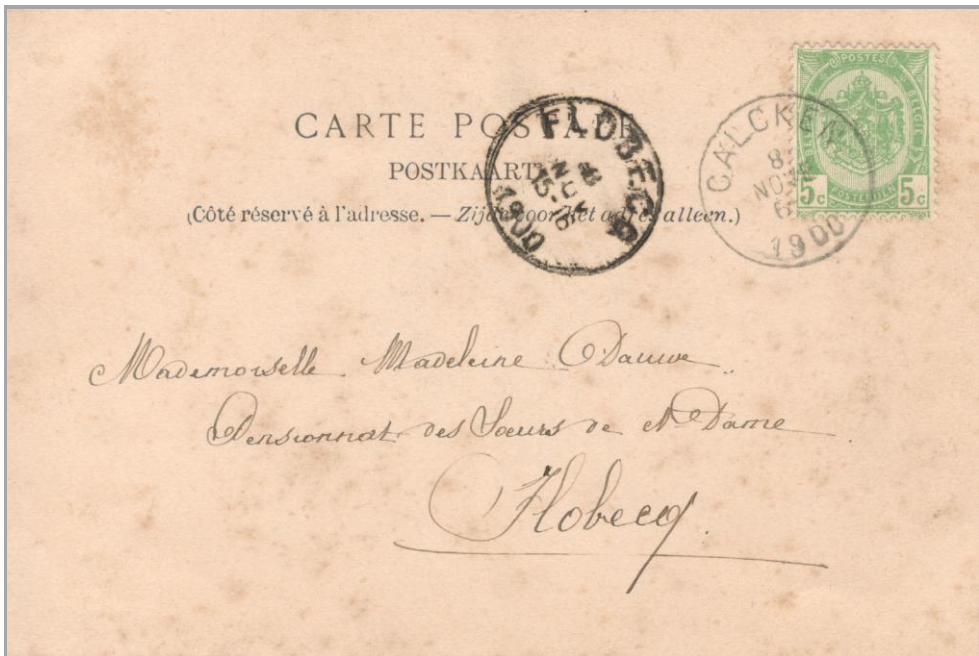 POSTES BELGIE
CARTE POSTALE
POSTKAART
(Côté réservé à l'adresse. — Zijde voor het adres alleen.)
FLOBECQ
NOV
15-16
1900
CALCKEN
8
NOV
6
1900
5c POSTERIJEN 5c
Mademoiselle Madeleine Dauwe
Pensionnat des Sœurs de N Dame
Flobecq.